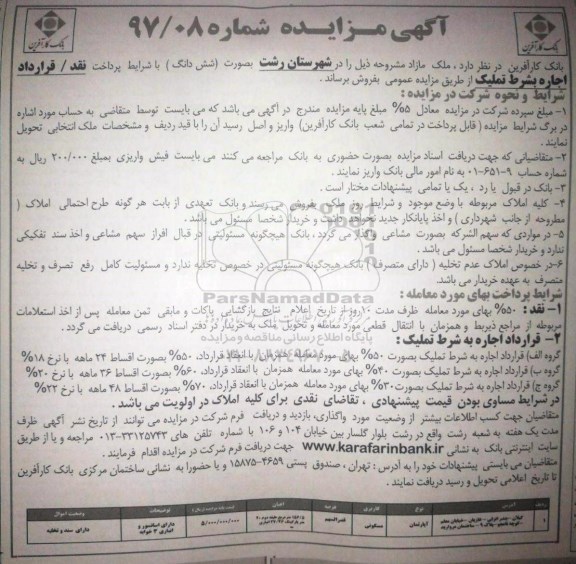 آگهی مزایده شماره ۹۷/۰۸
بانک کارآفرین
بانک کارآفرین
بانک کارآفرین در نظر دارد، ملک مازاد مشروحه ذیل را در شهرستان رشت بصورت (شش دانگ) با شرایط پرداخت نقد / قرارداد
اجاره بشرط تملیک از طریق مزایده عمومی بفروش برساند.
شرایط و نحوه شرکت در مزایده:
۱- مبلغ سپرده شرکت در مزایده معادل ۵% مبلغ پایه مزایده مندرج در آگهی می باشد که می بایست توسط متقاضی به حساب مورد اشاره
در برگ شرایط مزایده (قابل پرداخت در تمامی شعب بانک کارآفرین) واریز و اصل رسید آن را با قید ردیف و مشخصات ملک انتخابی تحویل
نمایند.
۲- متقاضیانی که جهت دریافت اسناد مزایده بصورت حضوری به بانک مراجعه می کنند می بایست فیش واریزی بمبلغ ۲۰۰/۰۰۰ ریال به
شماره حساب ۹-۶۵۱-۰۱ به نام امور مالی بانک واریز نمایند.
۳- بانک در قبول یا رد، یک یا تمامی پیشنهادات مختار است.
۴- کلیه املاک مربوطه با وضع موجود و شرایط روز ملک بفروش می رسند و بانک تعهدی از بابت هر گونه طرح احتمالی املاک (
مطروحه از جانب شهرداری) و اخذ پایانکار جدید نخواهد داشت و خریدار شخصا مسئول می باشد.
۵- در مواردی که سهم الشرکه بصورت مشاعی واگذار می گردد، بانک هیچگونه مسئولیتی در قبال افراز سهم مشاعی و اخذ سند تفکیکی
ندارد و خریدار شخصا مسئول می باشد.
۶- در خصوص املاک عدم تخلیه (دارای متصرف) بانک هیچگونه مسئولیتی در خصوص تخلیه ندارد و مسئولیت کامل رفع تصرف و تخلیه
متصرف به عهده خریدار می باشد.
شرایط پرداخت بهای مورد معامله:
۱- نقد: ۵۰% بهای مورد معامله ظرف مدت ۱۰روز از تاریخ اعلام نتایج بازگشایی پاکات و مابقی ثمن معامله پس از اخذ استعلامات
مربوطه از مراجع ذیربط و همزمان با انتقال قطعی مورد معامله و تحویل ملک به خریدار در دفتر اسناد رسمی دریافت می گردد.
۲- قرارداد اجاره به شرط تملیک:
گروه الف) قرارداد اجاره به شرط تملیک بصورت ۵۰% بهای مورد معامله همزمان با انعقاد قرارداد، ۵۰% بصورت اقساط ۲۴ ماهه با نرخ ۱۸%
گروه ب) قرارداد اجاره به شرط تملیک بصورت ۴۰% بهای مورد معامله همزمان با انعقاد قرارداد، ۶۰% بصورت اقساط ۳۶ ماهه با نرخ ۲۰%
گروه ج) قرارداد اجاره به شرط تملیک بصورت ۳۰% بهای مورد معامله همزمان با انعقاد قرارداد، ۷۰% بصورت اقساط ۴۸ ماهه با نرخ ۲۲%
در شرایط مساوی بودن قیمت پیشنهادی، تقاضای نقدی برای کلیه املاک در اولویت می باشد.
متقاضیان جهت کسب اطلاعات بیشتر از وضعیت مورد واگذاری، بازدید و دریافت فرم شرکت در مزایده می توانند از تاریخ نشر آگهی ظرف
مدت یک هفته به شعبه رشت واقع در رشت بلوار گلسار بین خیابان ۱۰۴ و ۱۰۶ با شماره تلفن های ۳۳۱۲۵۷۴۳-۰۱۳ مراجعه و یا از طریق
سایت اینترنتی بانک به نشانی www.karafarinbank.ir جهت دریافت فرم شرکت در مزایده اقدام فرمایند.
متقاضیان می بایستی پیشنهادات خود را به آدرس: تهران، صندوق پستی ۴۶۵۹-۱۵۸۷۵ و یا حضورا به نشانی ساختمان مرکزی بانک کارآفرین
تا تاریخ اعلامی تحویل و رسید دریافت نمایند.
ParsNamadData
پایگاه اطلاع رسانی مناقصه و مزایده
ردیف آدرس نوع کاربری عرصه توضیحات وضعیت احوال
۱ آپارتمان مسکونی قدرالسهم ۵/۰۰۰/۰۰۰/۰۰۰ دارای آسانسور و دارای سند و تخلیه
انباری ۳ خوابه